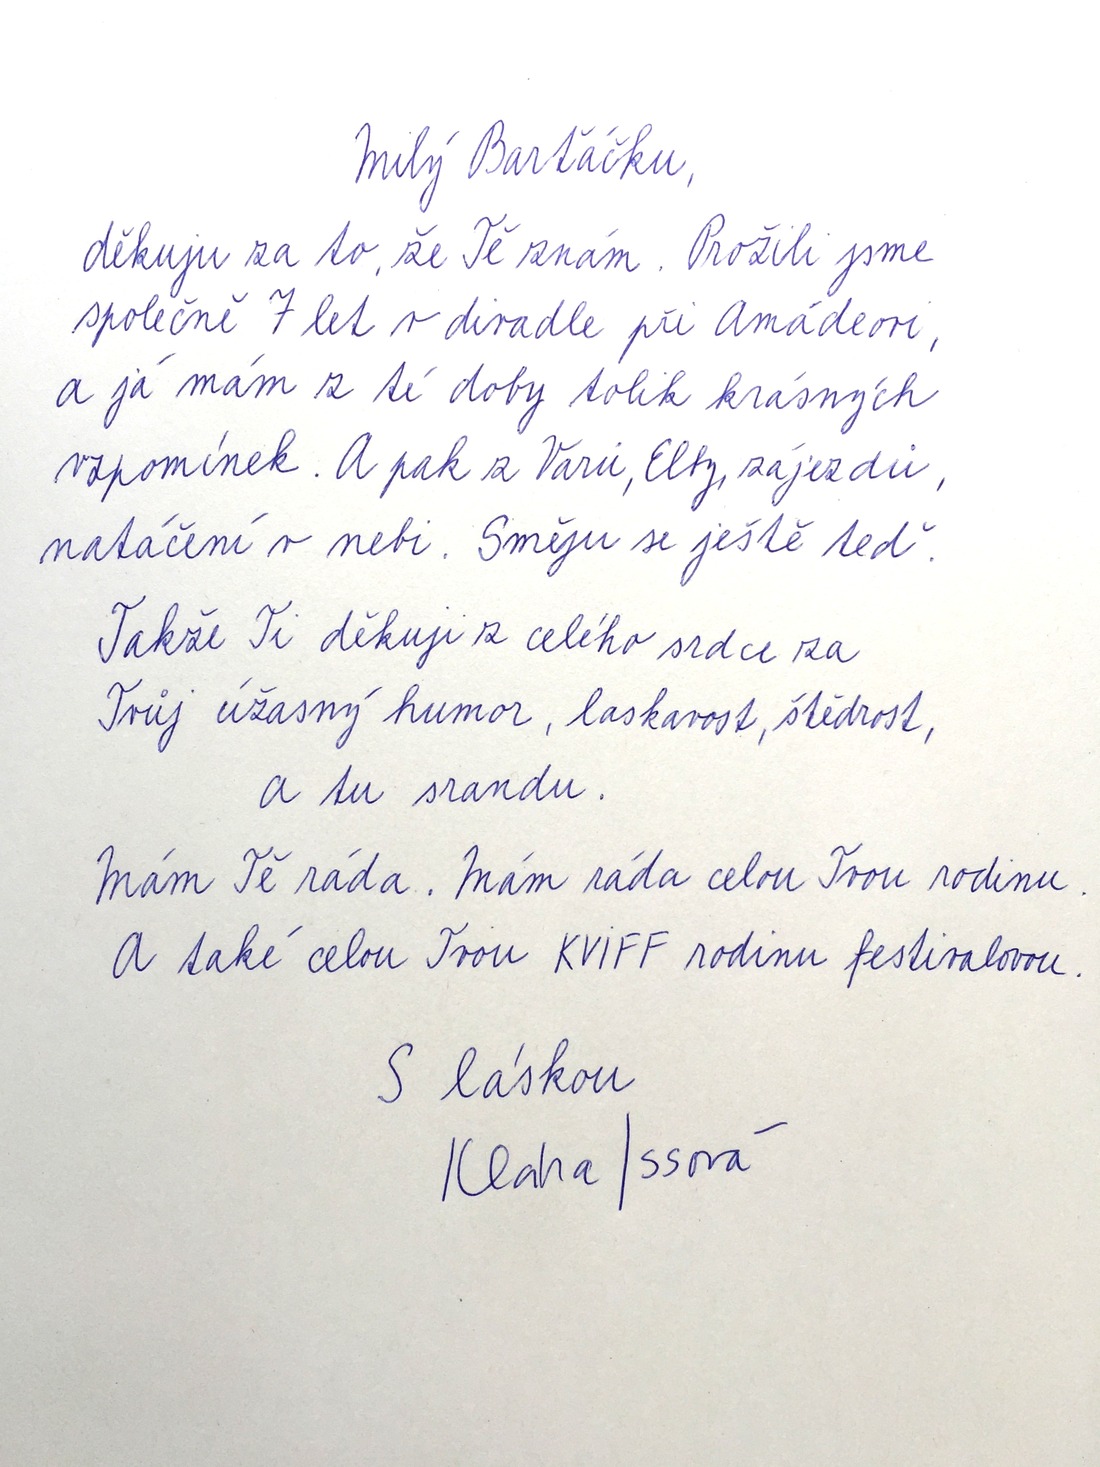 Milý Bartáčku,
děkuju za to, že Tě znám. Prožili jsme
společně 7 let v divadle při Amádeovi,
a já mám z té doby tolik krásných
vzpomínek. A pak z Varů, Elty, zájezdů,
natáčení v nebi. Směju se ještě teď.
Takže Ti děkuji z celého srdce za
Tvůj úžasný humor, laskavost, štědrost,
a tu srandu.
Mám Tě ráda. Mám ráda celou Tvou rodinu.
A také celou Tvou KVIFF rodinu festivalovou.
S láskou
Klára Issová